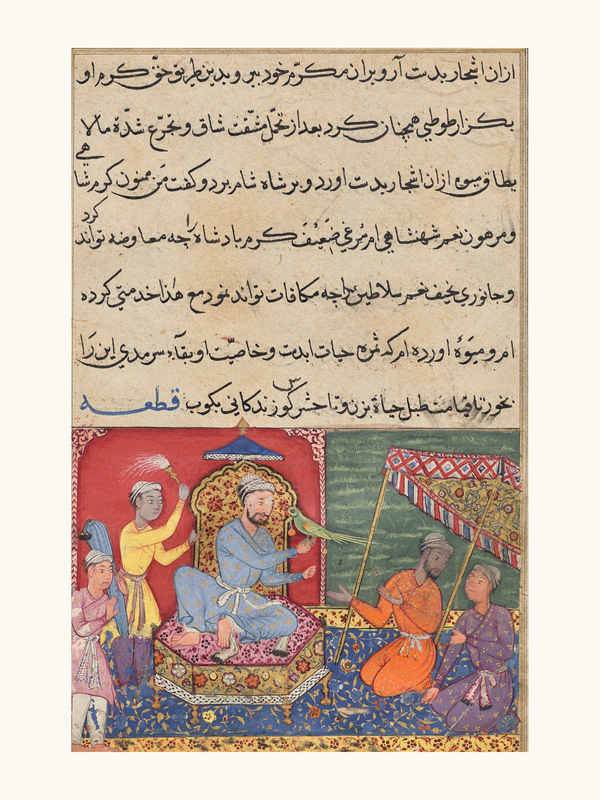 ازان اشجار بدست آر و بران مکرّم خود ببر و بدین طریق حق کرم او
بکزار طوطی همچنان کرد بعد از تحمّل مشقت شاق و تجرّع شدّة مالا
یطاق میوه ازان اشجار بدست اورد و بر شاه شام برد و کفت من ممنون کرم شاهی
و مرهون نعم شهنشاهی ام مرغی ضعیف کرم بادشاه را چه معاوضه تواند کرد
و جانوری نحیف نعم سلاطین را چه مکافات تواند نمود مع هذا خدمتی کرده
ام و میوۀ اورده ام که ثمره حیات ابدیت و خاصیت او بقاء سرمدی این را
بخور تا قیامت طبل حیاة بزن و تا حشر کوس زندکانی بکوب قطعه